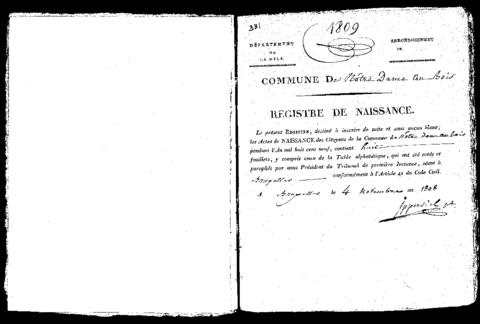 331
1809
DÉPARTEMENT
DE
LA DYLE.
ARRONDISSEMENT
DE
COMMUNE De Nôtre Dame au Bois
REGISTRE DE NAISSANCE.
Le présent REGISTRE, destiné à inscrire de suite et sans aucun blanc,
les Actes de NAISSANCE des Citoyens de la Commune de Nôtre Dame au bois
pendant l'An mil huit cent neuf, contient huit
feuillets, y compris ceux de la Table alphabétique, qui ont été cotés et
paraphés par nous Président du Tribunal de première Instance, séant à
Bruxelles conformément à l'Article 41 du Code Civil.
A Bruxelles le 4 Novembre an 1808